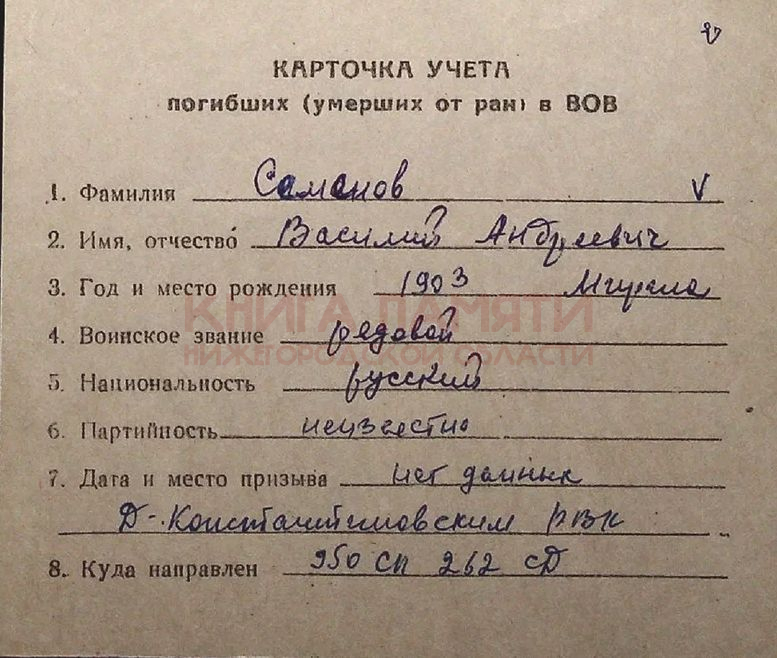 КАРТОЧКА УЧЕТА
погибших (умерших от ран) в ВОВ
1. Фамилия Саманов V
2. Имя, отчество Василий Андреевич
3. Год и место рождения 1903
4. Воинское звание рядовой
5. Национальность русский
6. Партийность неизвестно
7. Дата и место призыва нет данных
Д-Константиновским РВК
8. Куда направлен 950 СП 262 СД
КНИГА ПАМЯТИ
НИЖЕГОРОДСКОЙ ОБЛАСТИ